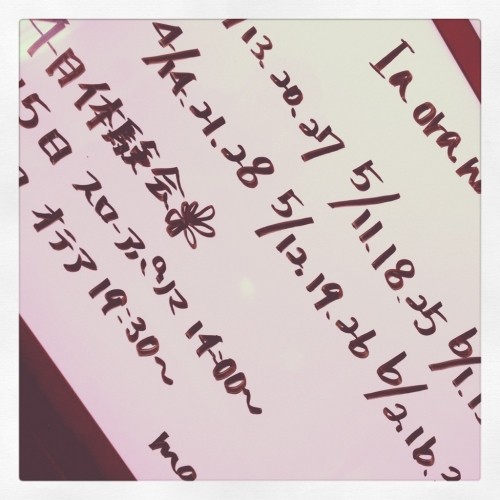 Ia oran
13. 20. 27 5/11. 18. 25 6/1.
4/14. 21. 28 5/12. 19. 26 6/2. 16.
4月体験会
15日 14:00〜
オテア 19:30〜
mo